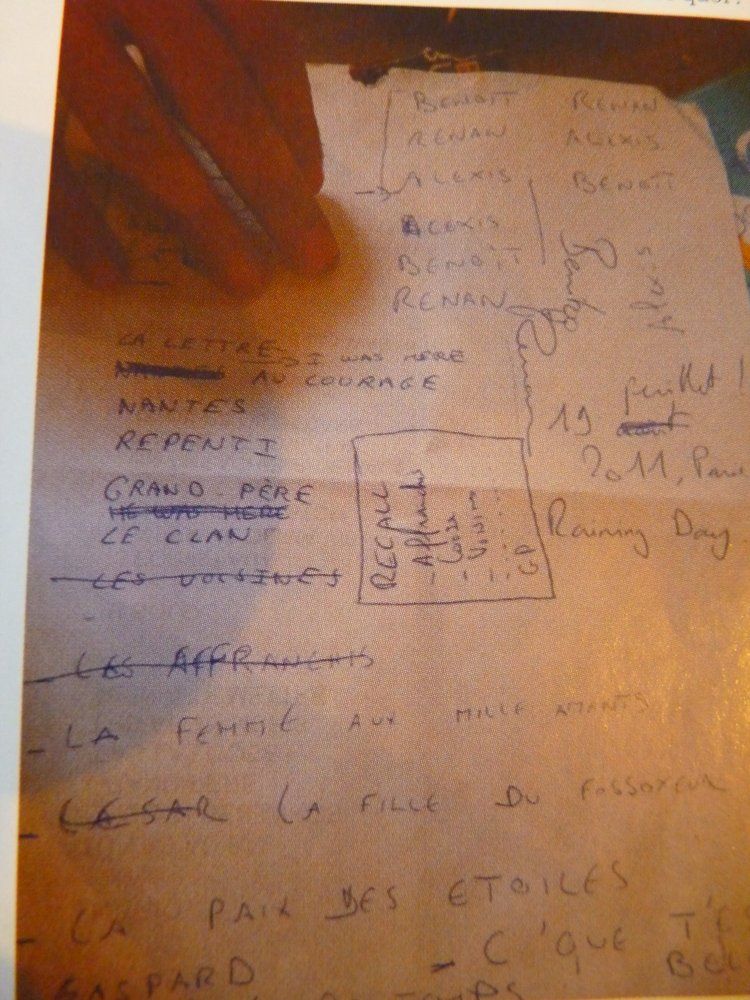 BENOIT RENAN
RENAN ALEXIS
ALEXIS BENOIT
ALEXIS
BENOIT
RENAN
Renan
LA LETTRE I WAS HERE
AU COURAGE
NANTES
REPENTI
GRAND-PÈRE
HE WAS HERE
LE CLAN
LES VOISINES
RECALL
- Affranchis
- César
- Voisine
- GP
19 juillet !
août
2011,
Raining Day
- LES AFFRANCHIS
- LA FEMME AUX MILLE AMANTS
- CESAR LA FILLE DU FOSSOYEUR
- LA PAIX DES ETOILES
GASPARD - C'QUE T'E
BEL